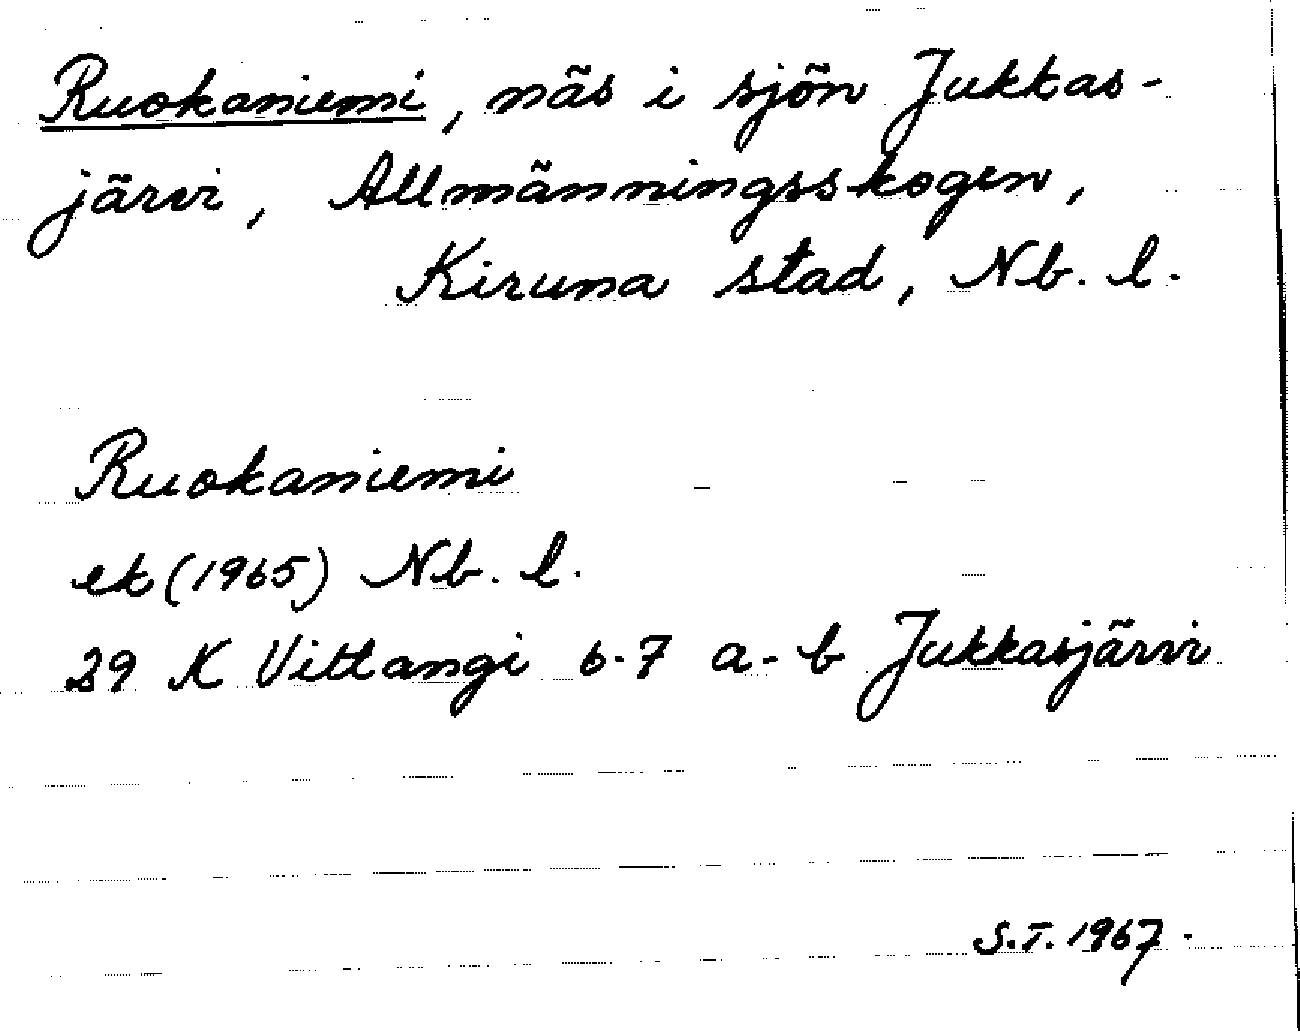 Ruokaniemi, näs i sjön Jukkas-
järvi, Allmänningsskogen,
Kiruna stad, Nb. l.
Ruokaniemi
ek (1965) Nb. l.
29 K Vittangi 6-7 a-b Jukkasjärvi
S.T. 1967.